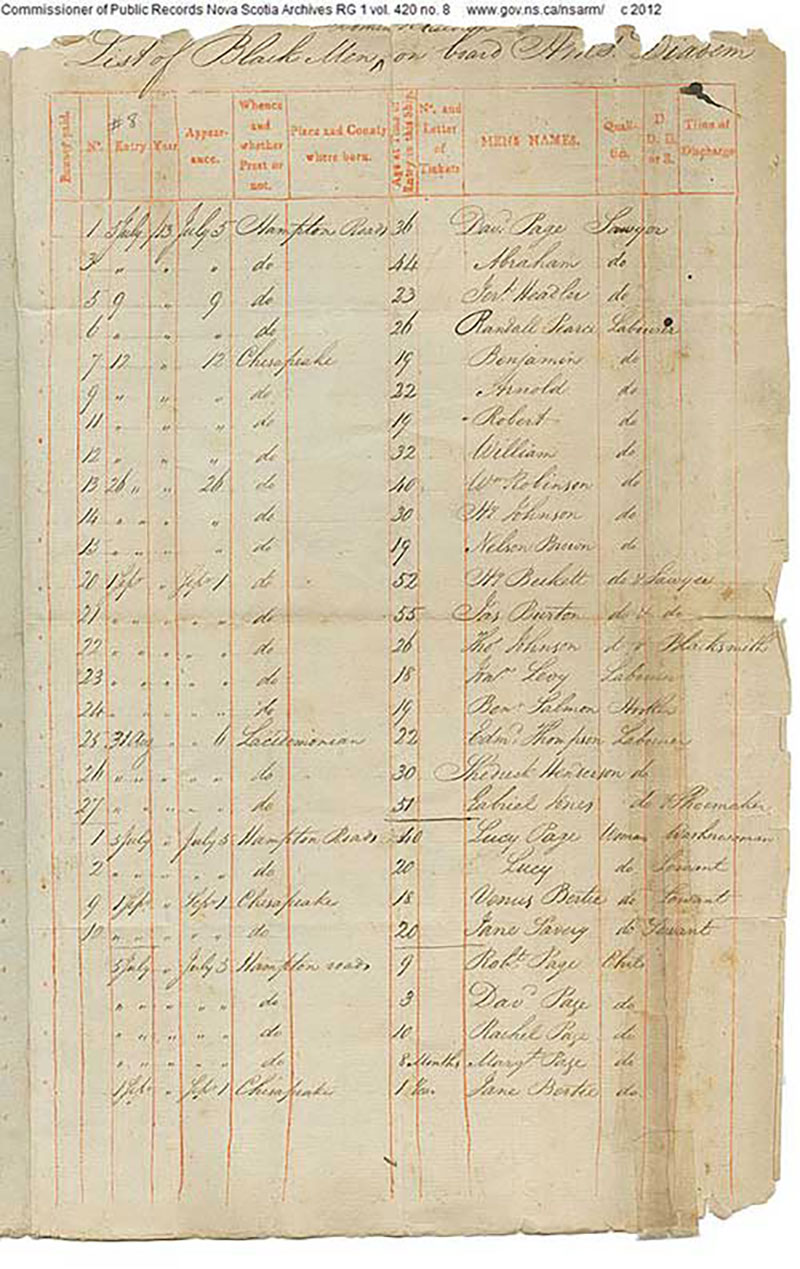 Commissioner of Public Records Nova Scotia Archives RG 1 vol. 420 no. 8 www.gov.ns.ca/nsarm/ c 2012
Women &
List of Black Men, on board HMS. Diadem
#8
Bounty paid. No. Entry Year Appear-ance. Whence and whether Prest or not. Place and County where born. Age at Time of Entry in this Ship. No. and Letter of Tickets MEN'S NAMES. Quali-ties. D. D.D. or R. Time of Discharge
1 5 July /13 July 5 Hampton Roads 36 Davd. Page Sawyer
3 " " " do 44 Abraham do
5 9 " 9 do 23 Jert. Headler do
6 " " " do 26 Randall Pearce Labourer
7 12 " 12 Chesapeake 19 Benjamin do
9 " " " do 22 Arnold do
11 " " " do 19 Robert do
12 " " " do 32 William do
13 26 " " 26 do 40 Wm Robinson do
14 " " " " do 30 Hy Johnson do
15 " " " " do 19 Nelson Brown do
20 1 Sepr " Sepr 1 do 52 Hy Beckett do & Sawyer
21 " " " " do 55 Jas Burton do & do
22 " " " " do 26 Thos Johnson do & Blacksmith
23 " " " " do 18 Levy Labourer
24 " " " " do 19 Benn Salmon
25 31 Aug " " 6 Lacedemonian 22 Edmd Thompson Labourer
26 " " " " do 30 Henderson do
27 " " " " do 51 Gabriel Jones do & Shoemaker
1 5 July " July 5 Hampton Roads 40 Lucy Page Woman Washerwoman
2 " " " " do 20 Lucy do Servant
9 1 Sepr " Sepr 1 Chesapeake 18 Venus Bertie do Servant
10 " " " " do 20 Jane Savery do Servant
5 July " July 5 Hampton roads 9 Robt Page Child
" " " " do 3 Davd Page do
" " " " do 10 Rachel Page do
" " " " do 8 Months Margt Page do
1 Sepr " Sepr 1 Chesapeake 1 Year Jane Bertie do